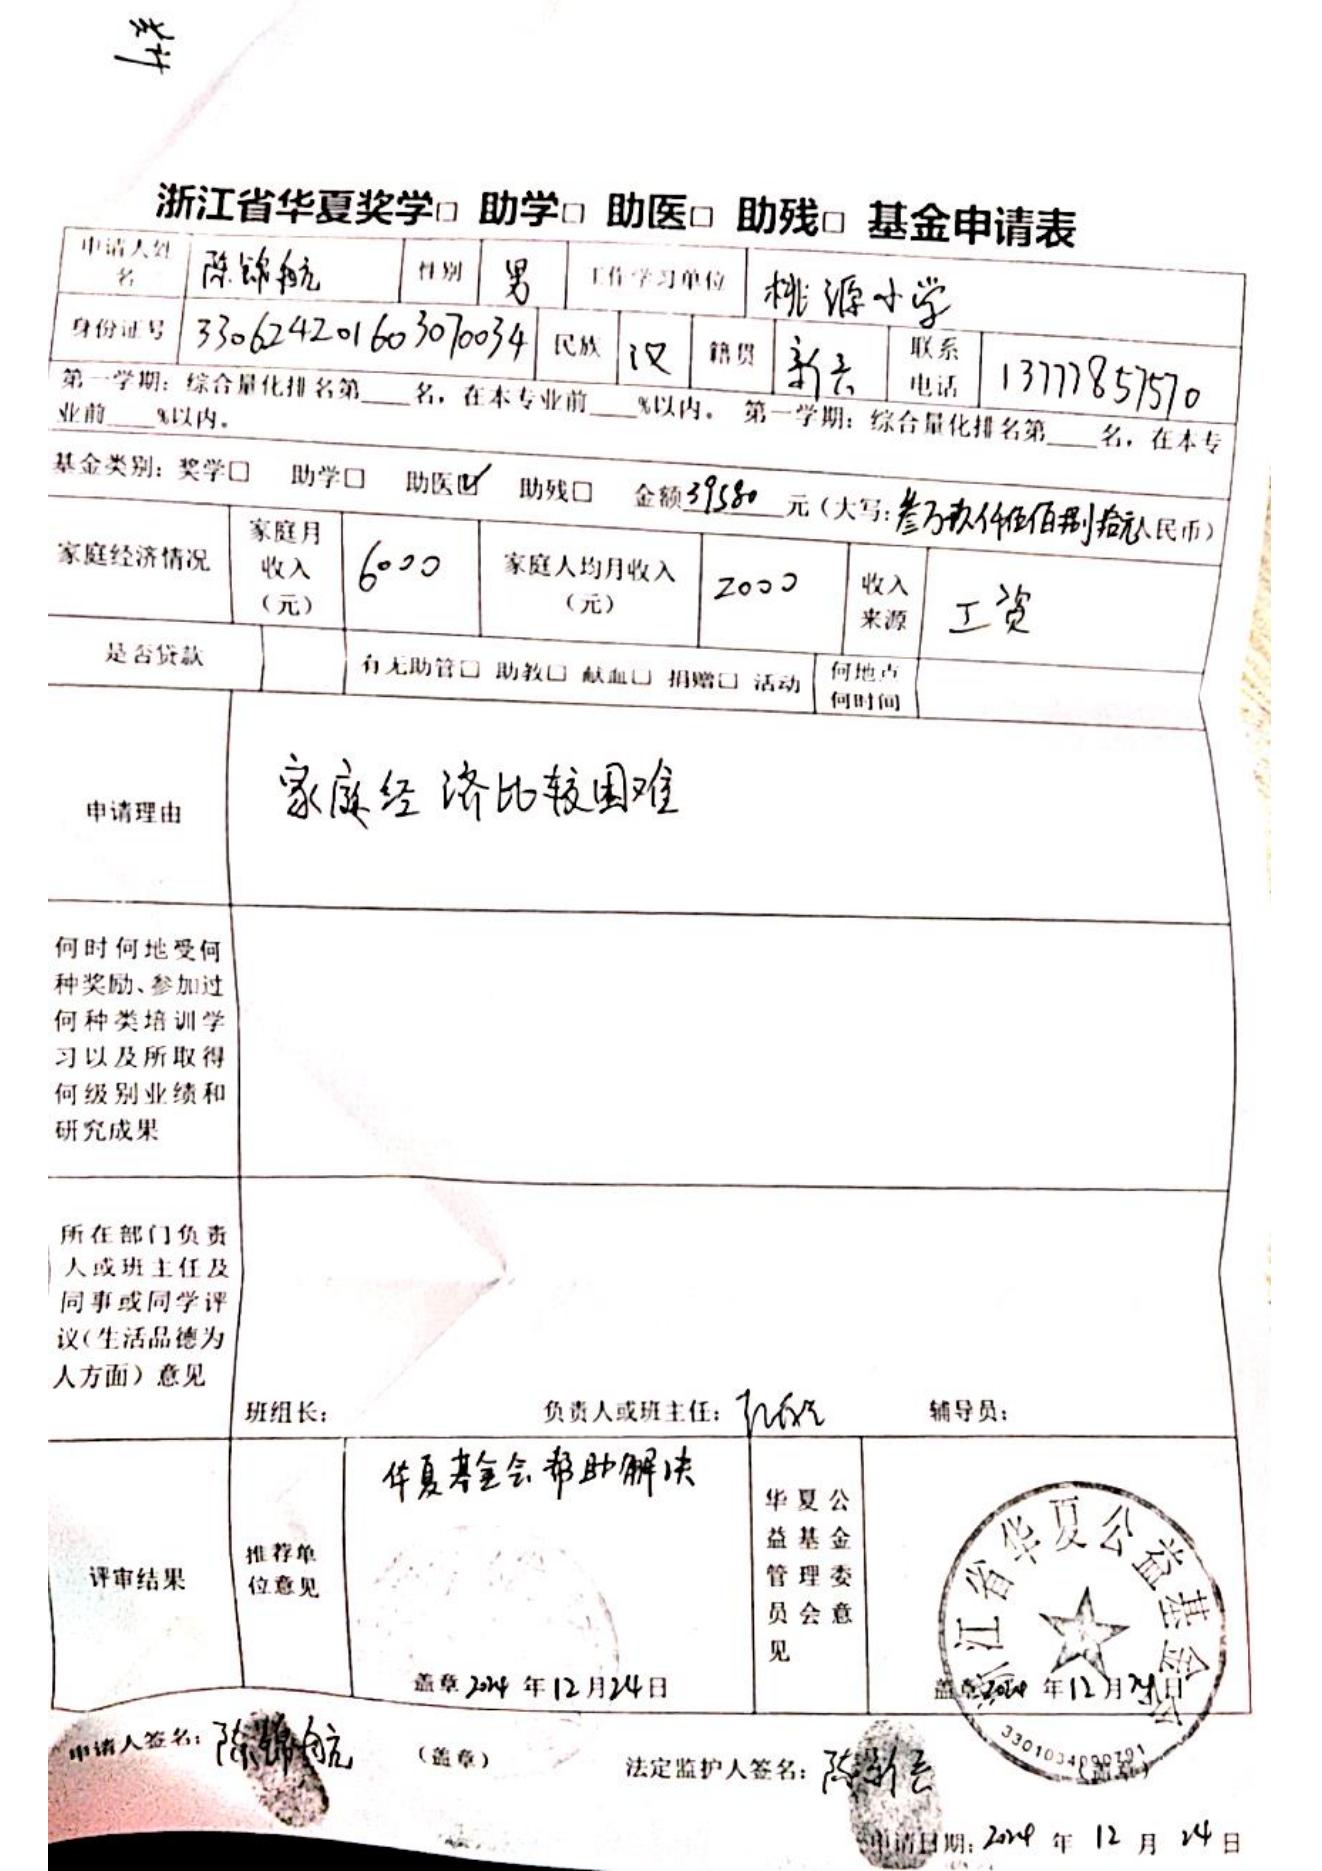 浙江省华夏奖学□ 助学□ 助医□ 助残□ 基金申请表
申请人姓名 陈锦航 性别 男 工作学习单位 桃源小学
身份证号 330624201603070034 民族 汉 籍贯 新 联系电话 13777857570
第一学期：综合量化排名第___名，在本专业前___%以内。 第一学期：综合量化排名第___名，在本专
业前___%以内。
基金类别：奖学□ 助学□ 助医☑ 助残□ 金额39580元（大写：叁万玖仟伍佰捌拾元人民币）
家庭经济情况 家庭月收入（元） 6000 家庭人均月收入（元） 2000 收入来源 工资
是否贷款 有无助管□ 助教□ 献血□ 捐赠□ 活动 何地点何时间
申请理由 家庭经济比较困难
何时何地受何
种奖励、参加过
何种类培训学
习以及所取得
何级别业绩和
研究成果
所在部门负责
人或班主任及
同事或同学评
议（生活品德为
人方面）意见
班组长： 负责人或班主任： 辅导员：
评审结果 推荐单位意见 华夏基金会帮助解决
盖章 2024年12月24日
华夏公益基金管理委员会意见
浙江省华夏公益基金会
盖章 2024年12月24日
3301034090791
申请人签名：陈锦航 （盖章） 法定监护人签名：陈新 （盖章）
申请日期：2024年12月24日